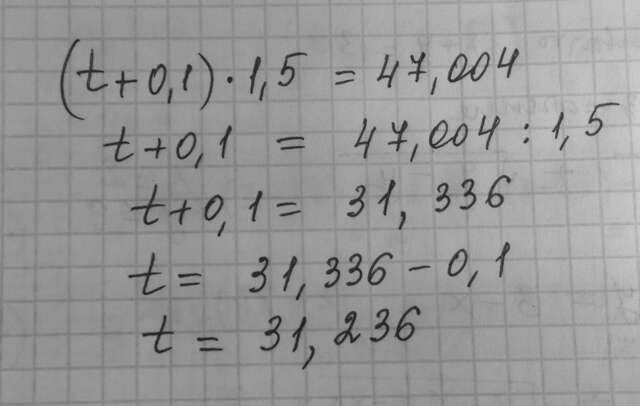 (t+0,1)·1,5 = 47,004
t+0,1 = 47,004 : 1,5
t+0,1 = 31,336
t = 31,336 - 0,1
t = 31,236